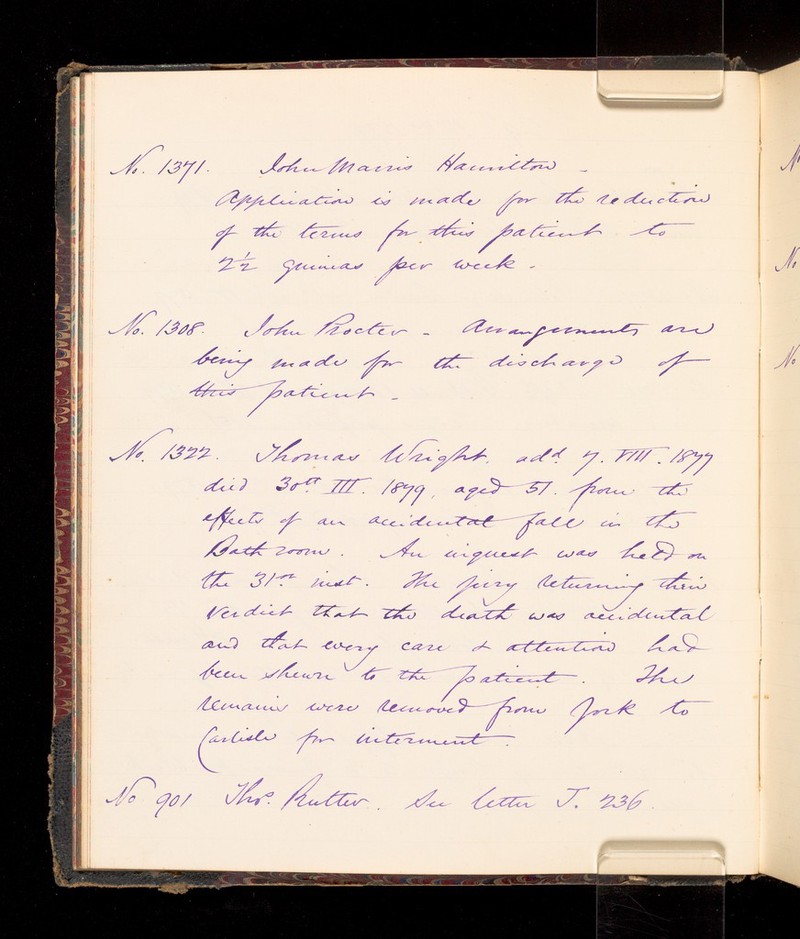 No. 1371. John Marris Hamilton -
Application is made for the reduction
of the terms for this patient to
2½ guineas per week.
No. 1308. John Procter - Arrangements are
being made for the discharge of
this patient -
No. 1322. Thomas Wright. add. 7. VIII. 1877
died 30th III. 1879, aged 51. from the
effects of an accidental fall in the
Bath room. An inquest was held on
the 31st inst. The jury returning their
verdict that the death was accidental
and that every care & attention had
been shewn to the patient. The
remains were removed from York to
Carlisle for interment.
No 901 Thos. Rutter. See letter J. 236.
No
No
No